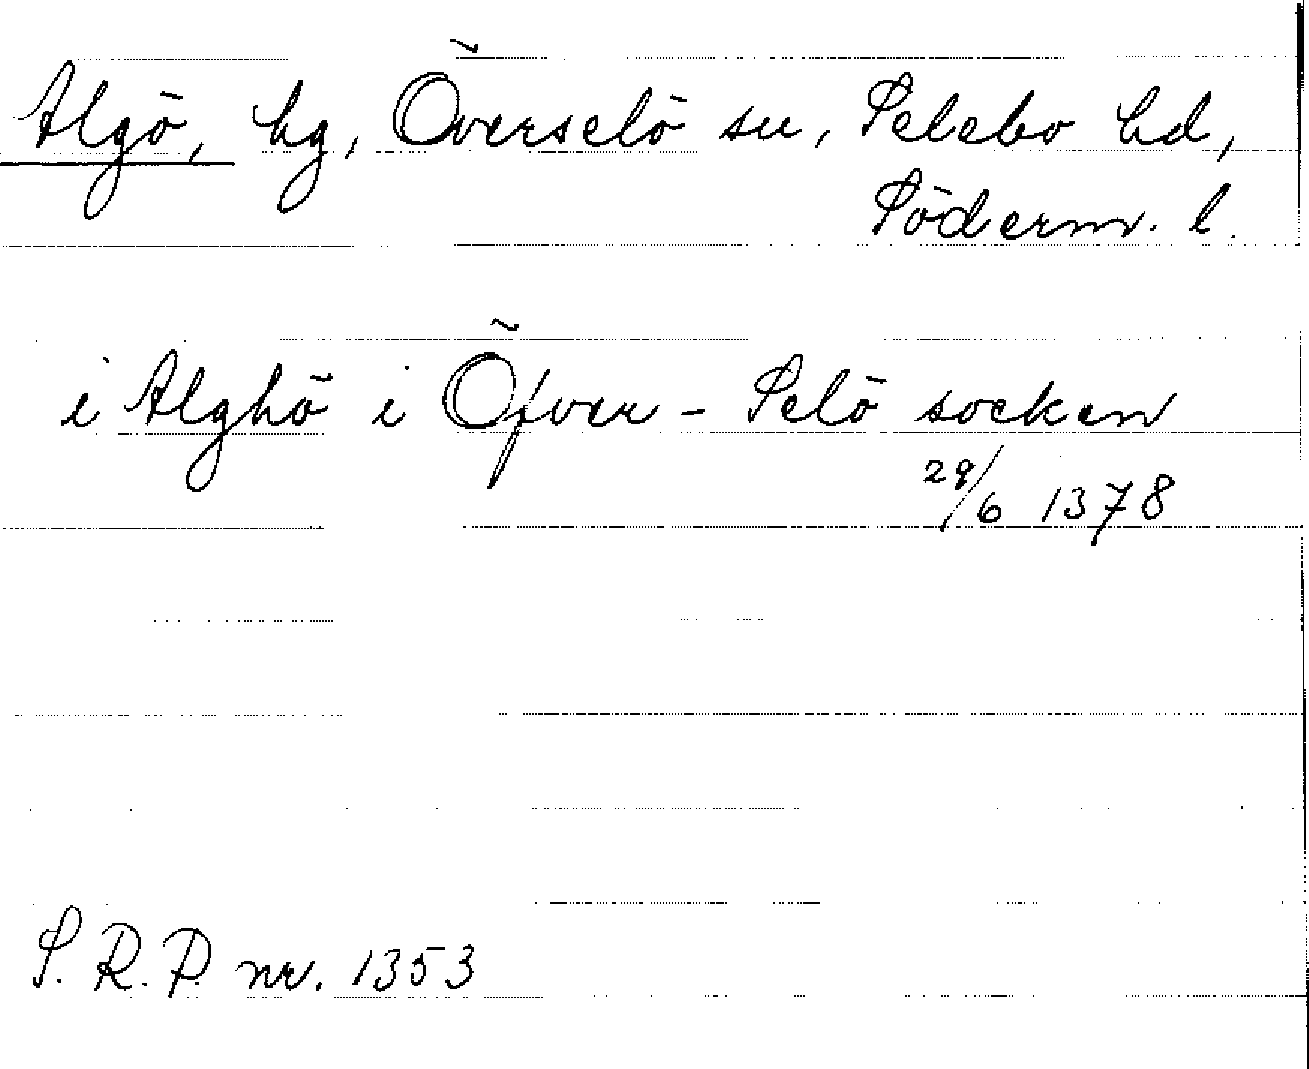 Algö, hg, Överselö sn, Selebo hd,
Söderm. l.
i Alghö i Öfver-Selö socken
29/6 1378
S. R. P. nr. 1353